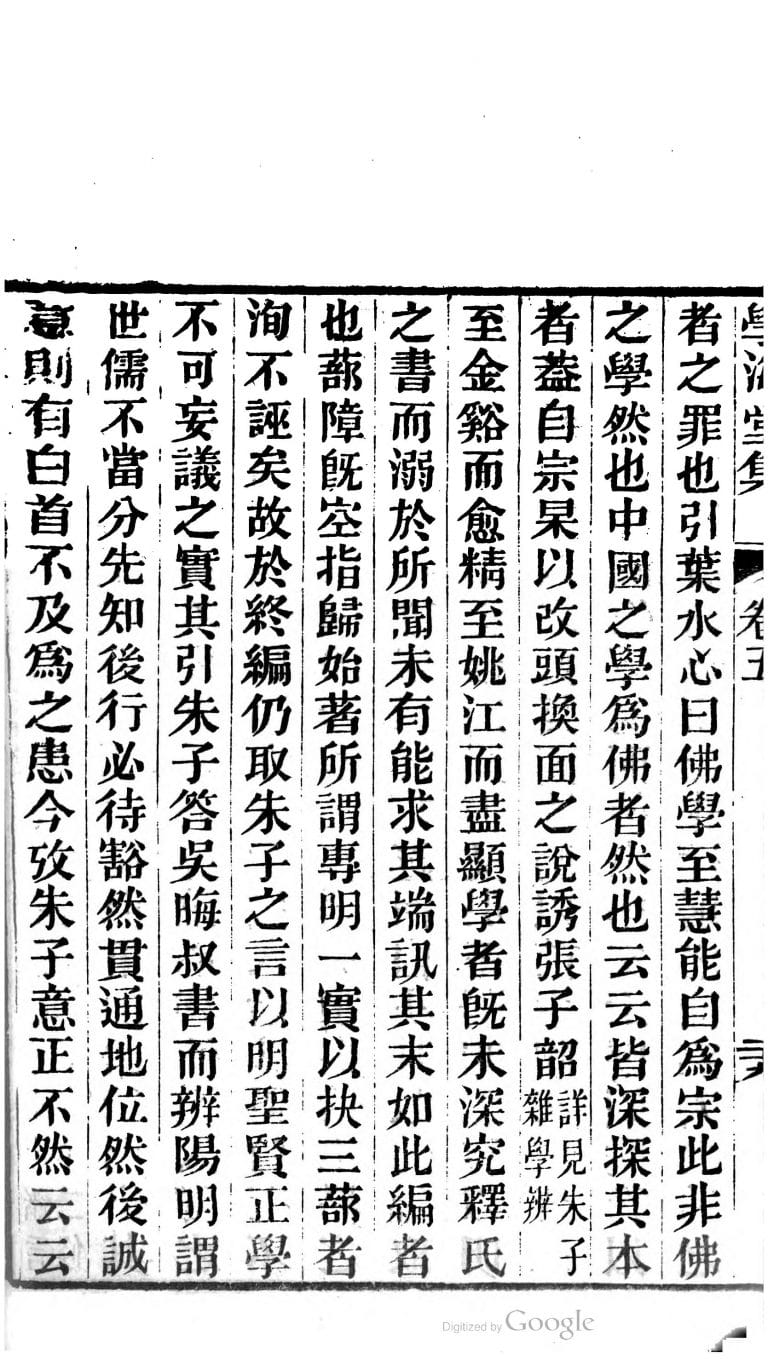 學海堂集 卷五 二六
者之罪也引葉水心曰佛學至慧能自爲宗此非佛
之學然也中國之學爲佛者然也云云皆深探其本
者葢自宗杲以改頭換面之說誘張子韶詳見朱子雜學辨
至金谿而愈精至姚江而盡顯學者旣未深究釋氏
之書而溺於所聞未有能求其端訊其末如此編者
也蔀障旣空指歸始著所謂專明一實以抉三蔀者
洵不誣矣故於終編仍取朱子之言以明聖賢正學
不可妄議之實其引朱子答吳晦叔書而辨陽明謂
世儒不當分先知後行必待豁然貫通地位然後誠
意則有白首不及爲之患今攷朱子意正不然云云
Digitized by Google